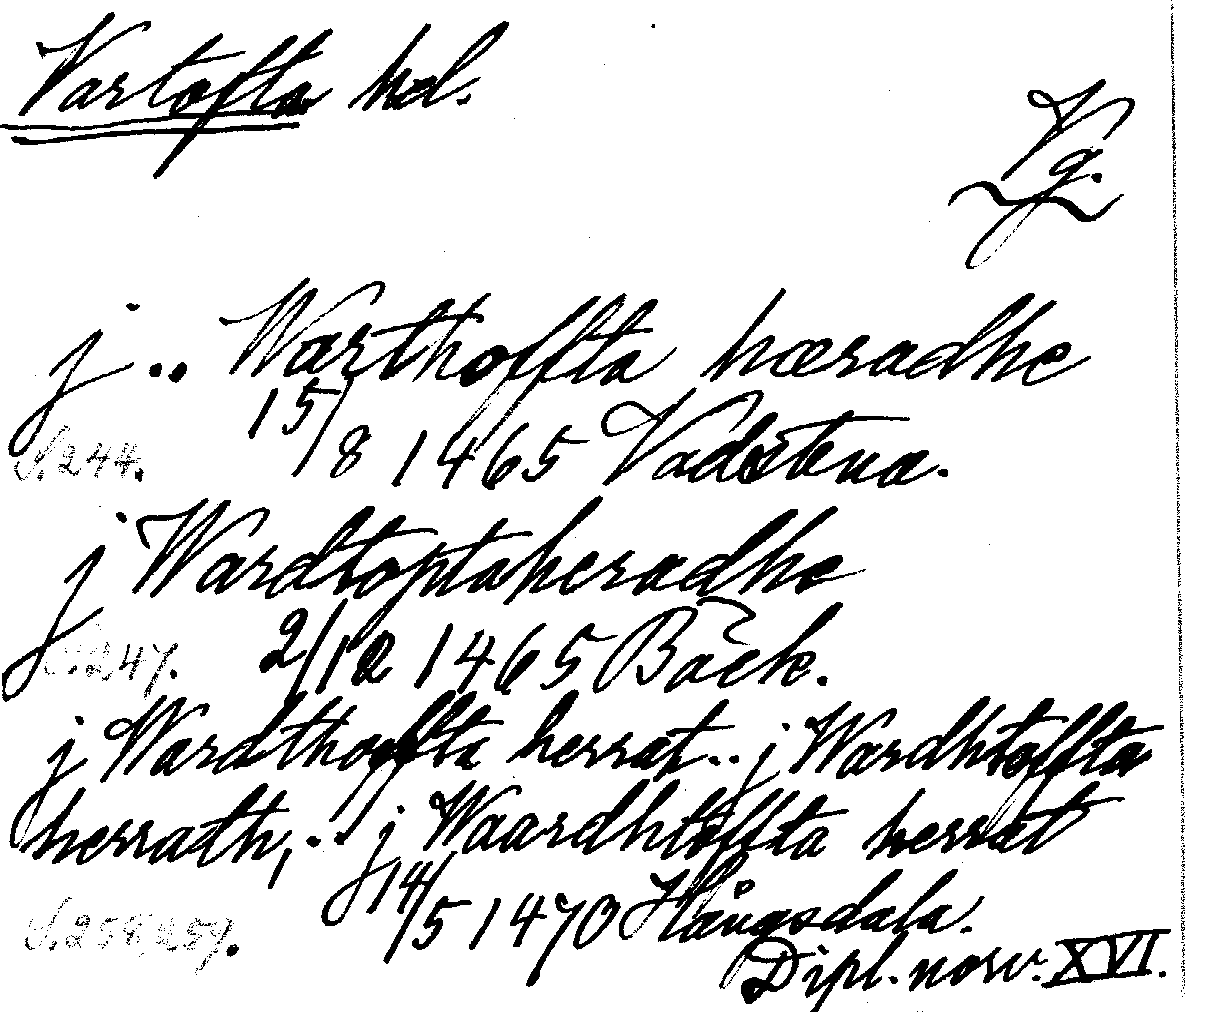 Vartofta hd.
Vg.
j .. Warthoffta hæradhe
15/8 1465 Vadstena.
S. 244.
j Wardtoptaheradhe
S. 247. 2/12 1465 Bäck.
j Wardthoffta herrat .. j Wardhtoffta
herrath, .. j Waardhtoffta herrat
14/5 1470 Hångsdala.
S. 258, 259.
Dipl. norv. XVI.